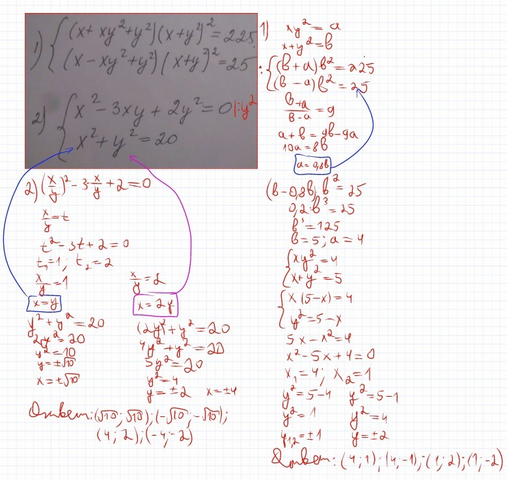 1) { (x + xy² + y²)(x + y²)² = 225
(x - xy² + y²)(x + y²)² = 25
2) { x² - 3xy + 2y² = 0 |: y²
x² + y² = 20
2) (x/y)² - 3·x/y + 2 = 0
x/y = t
t² - 3t + 2 = 0
t₁ = 1; t₂ = 2
x/y = 1
x = y
y² + y² = 20
2y² = 20
y² = 10
y = ±√10
x = ±√10
x/y = 2
x = 2y
(2y)² + y² = 20
4y² + y² = 20
5y² = 20
y² = 4
y = ±2 x = ±4
Ответ: (√10; √10); (-√10; -√10);
(4; 2); (-4; -2)
1) xy² = a
x + y² = b
{ (b + a) b² = 225
(b - a) b² = 25
b+a/b-a = 9
a + b = 9b - 9a
10a = 8b
a = 0,8b
(b - 0,8b) b² = 25
0,2·b³ = 25
b³ = 125
b = 5; a = 4
{ xy² = 4
x + y² = 5
{ x(5 - x) = 4
y² = 5 - x
5x - x² = 4
x² - 5x + 4 = 0
x₁ = 4; x₂ = 1
y² = 5 - 4 y² = 5 - 1
y² = 1 y² = 4
y₁,₂ = ±1 y = ±2
Ответ: (4; 1); (4; -1); (1; 2); (1; -2)